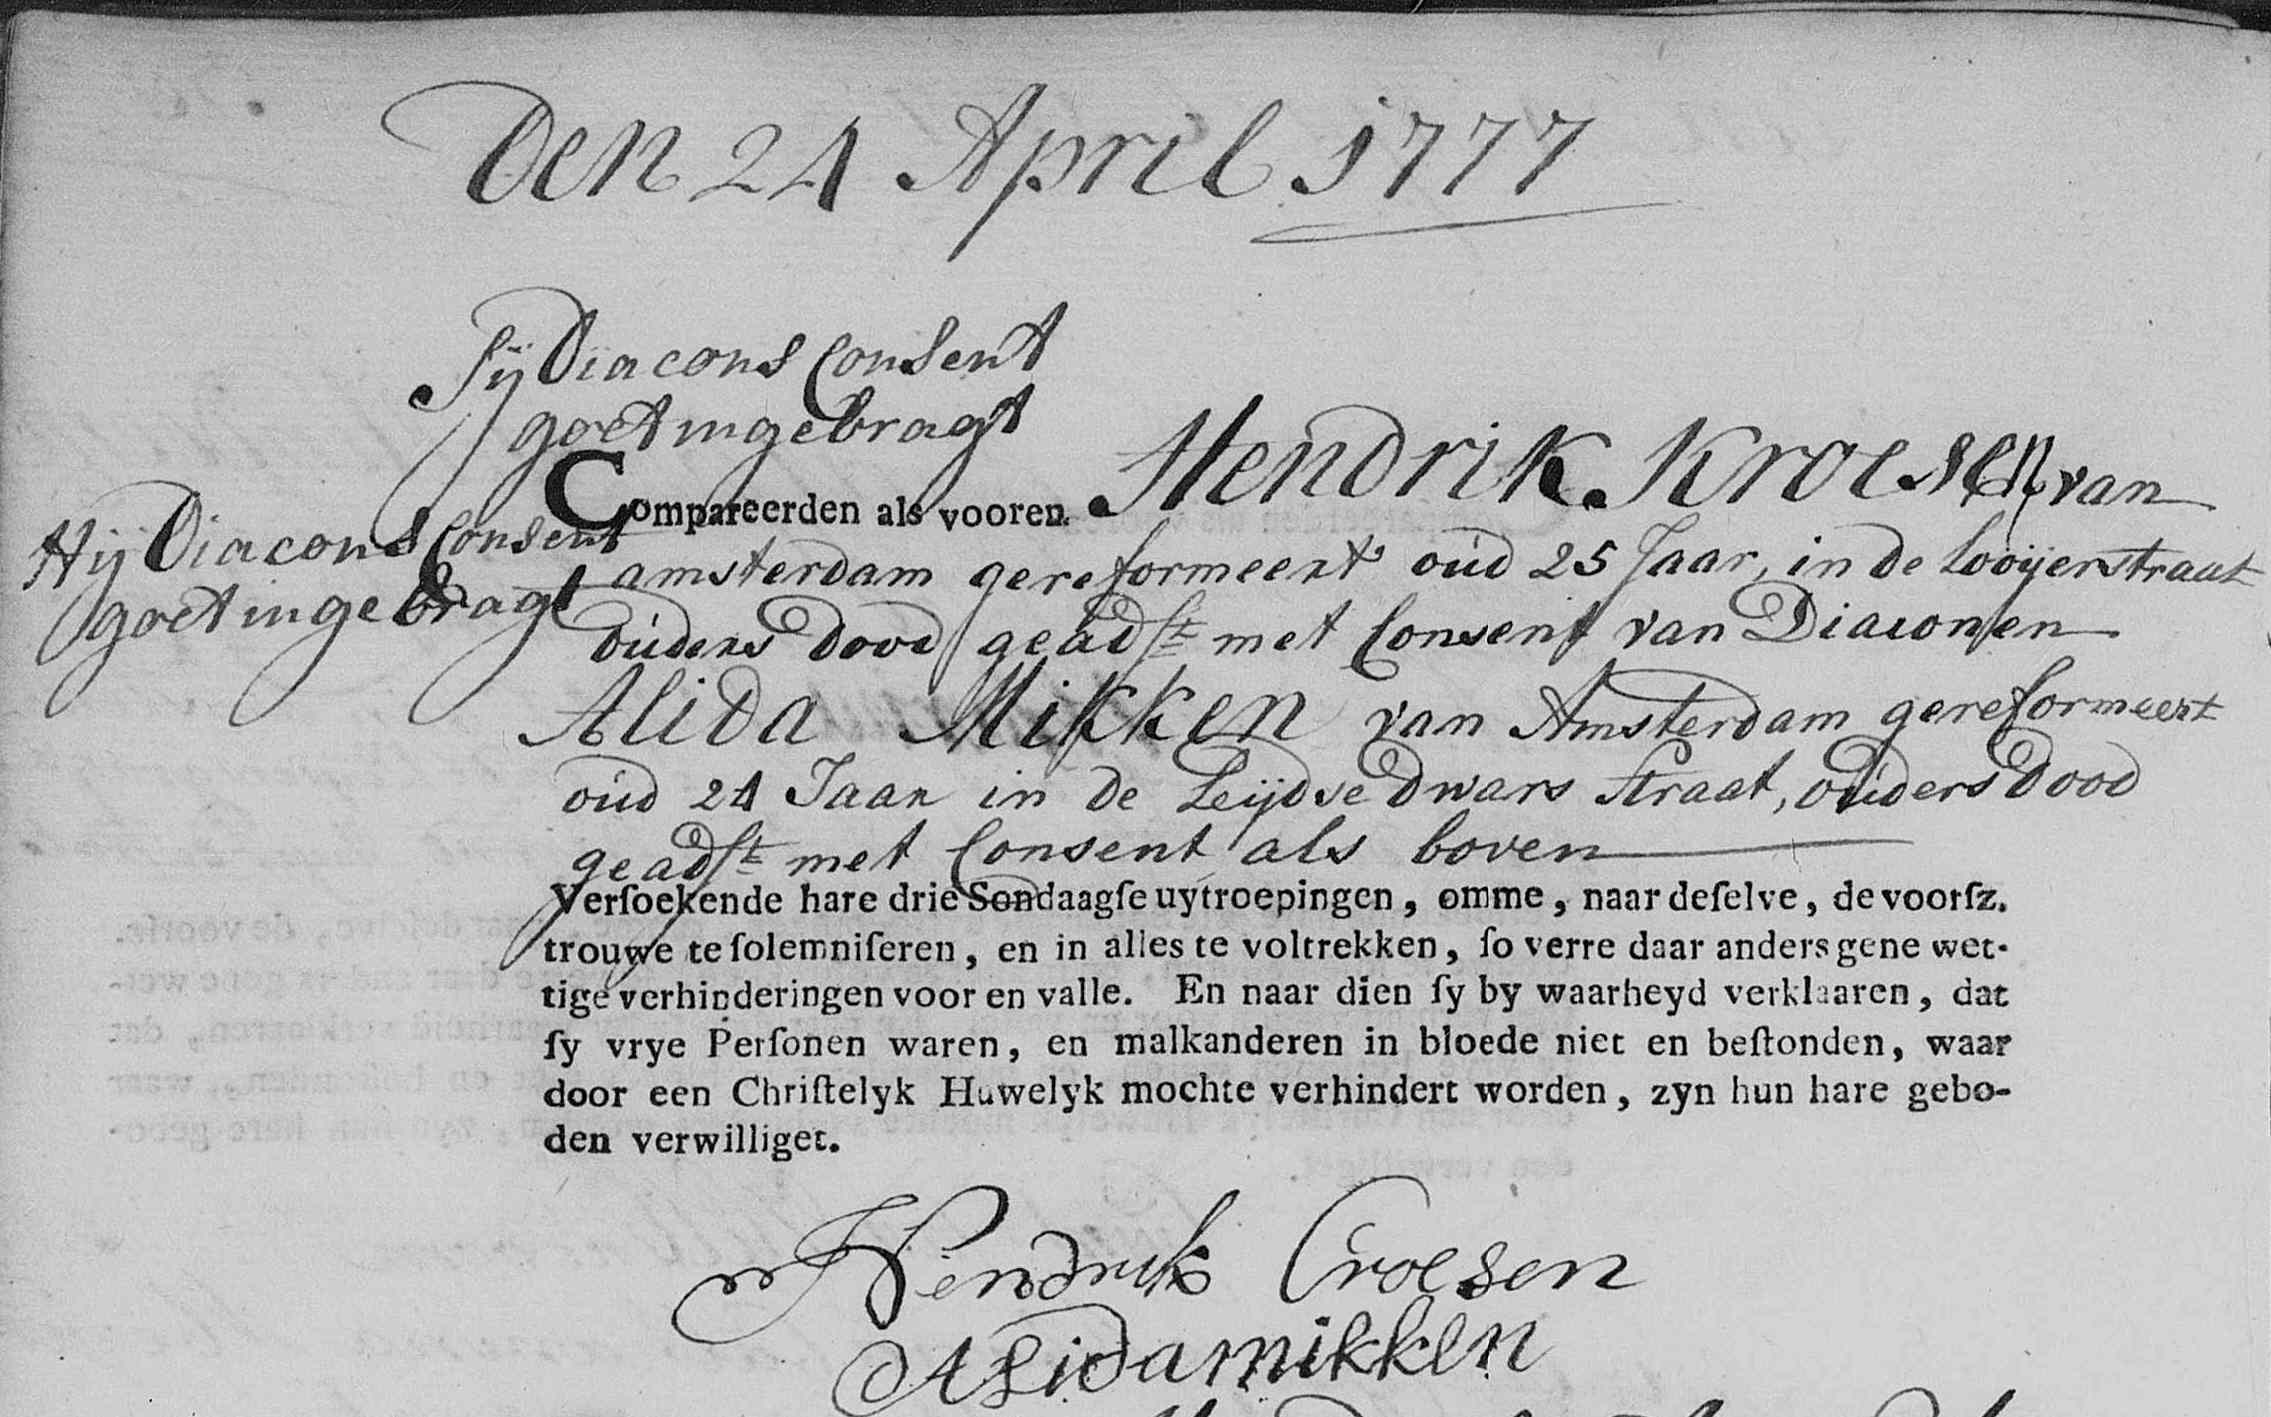 Den 24 April 1777
Sÿ Diacons Consent
goet ingebragt
Compareerden als vooren. Hendrik Kroesen, van
Hÿ Diacons Consent
goet ingebragt
amsterdam gereformeert oud 25 Jaar, in de Looÿerstraat
ouders dood geadst met Consent van Diaconen
Alida Mikken van Amsterdam gereformeert
oud 24 Jaar in de Leÿdse dwars straat, ouders dood
geadst met Consent als boven
Verſoekende hare drie Sondaagſe uytroepingen, omme, naar deſelve, de voorſz.
trouwe te ſolemniſeren, en in alles te voltrekken, ſo verre daar anders gene wet-
tige verhinderingen voor en valle. En naar dien ſy by waarheyd verklaaren, dat
ſy vrye Perſonen waren, en malkanderen in bloede niet en beſtonden, waar
door een Chriſtelyk Huwelyk mochte verhindert worden, zyn hun hare gebo-
den verwilliget.
Hendrik Croesen
Alida mikken